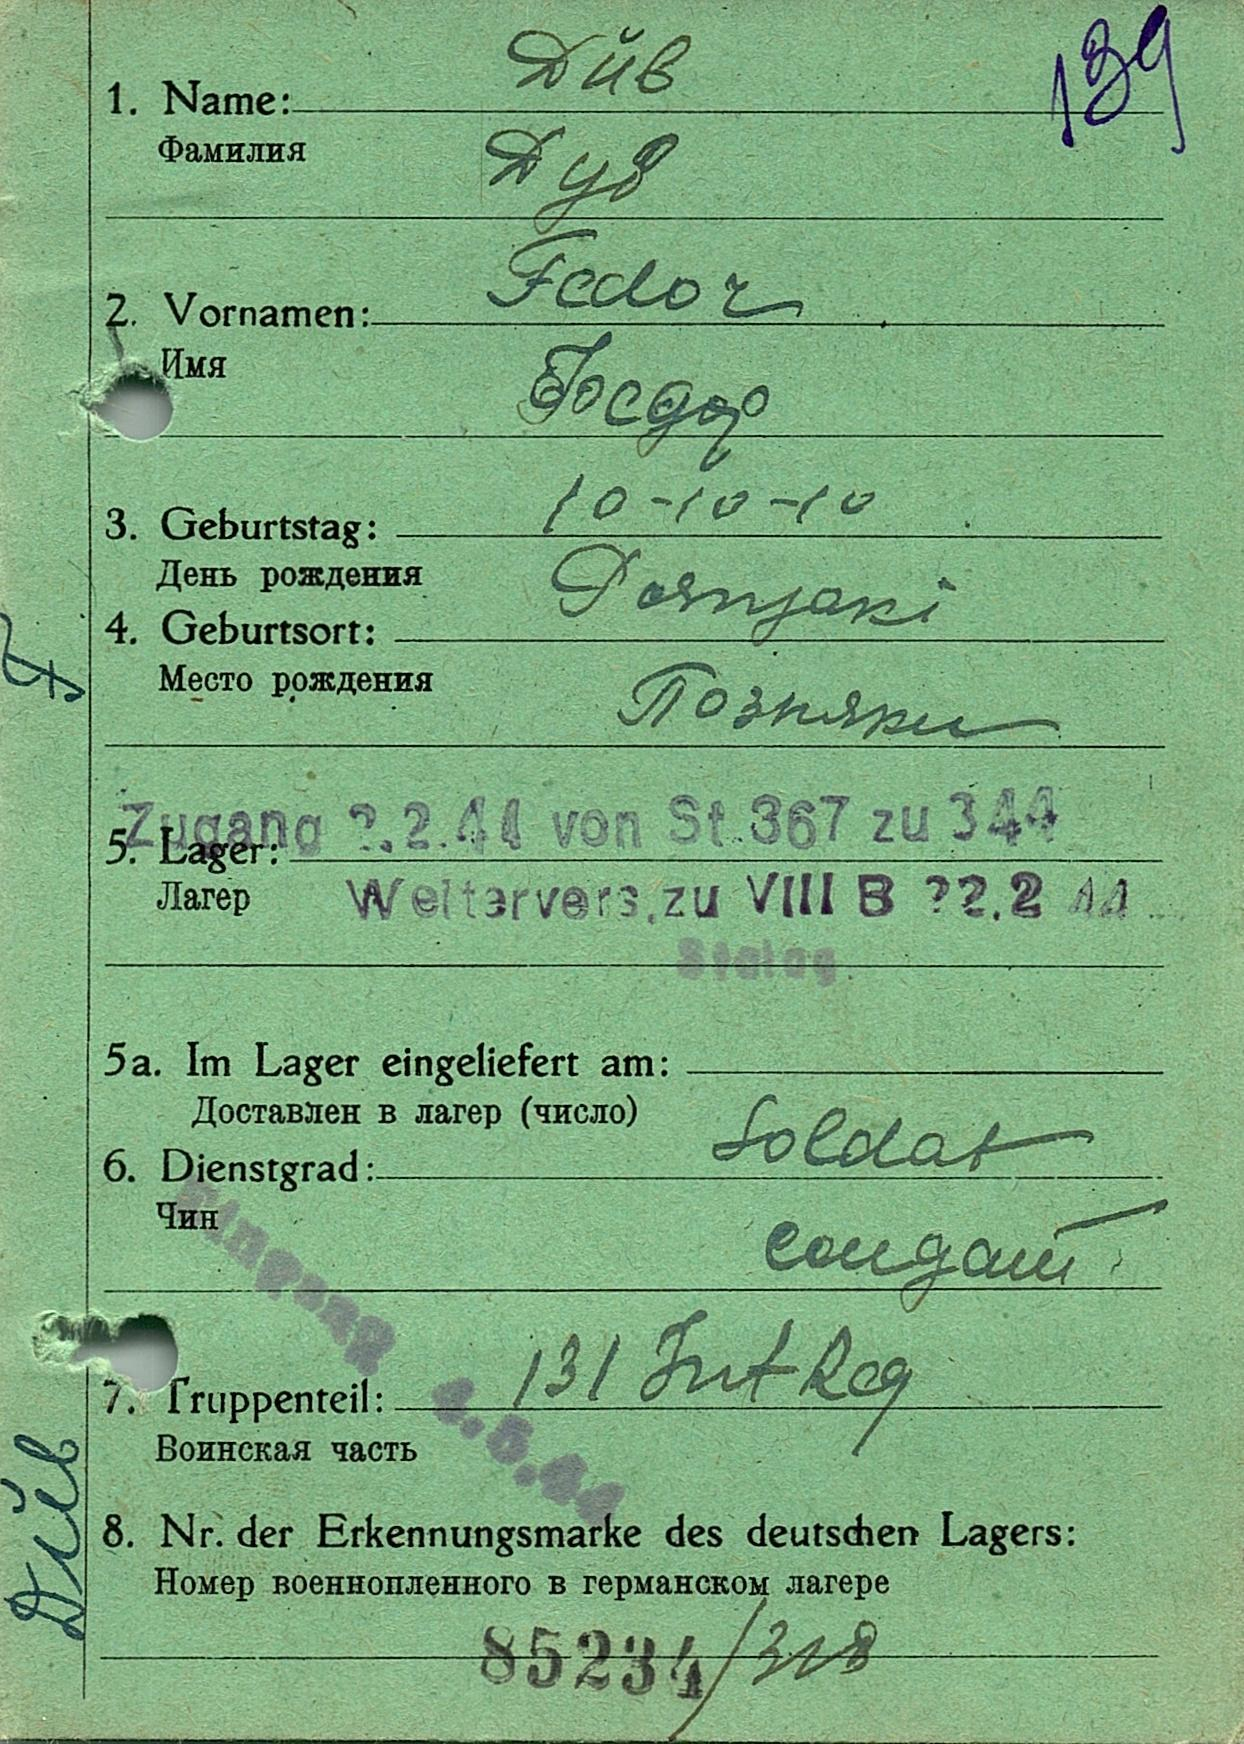 139
Дйв
1. Name:
Фамилия
Дув
Fedor
2. Vornamen:
Имя
10-10-10
3. Geburtstag:
День рождения
4. Geburtsort:
Место рождения
Позняки
Zugang ?.2.44 von St.367 zu 344
5. Lager:
Лагер
Weitervers.zu VIII B ??.2 44
Stalag
5a. Im Lager eingeliefert am:
Доставлен в лагер (число)
Soldat
6. Dienstgrad:
Чин
солдат
Eingang
131 Inf Reg
7. Truppenteil:
.5.44
Воинская часть
8. Nr. der Erkennungsmarke des deutschen Lagers:
Номер военнопленного в германском лагере
85234/318
Дйв